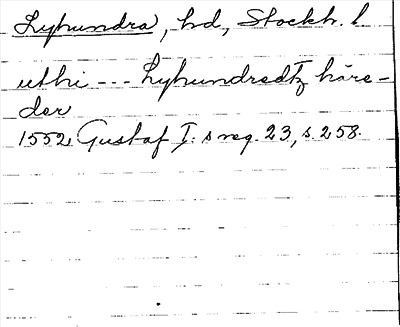 Lyhundra, hd, Stockh. l
uthi --- Lyhundredtz häre-
der
1552, Gustaf I:s reg. 23, s. 258.